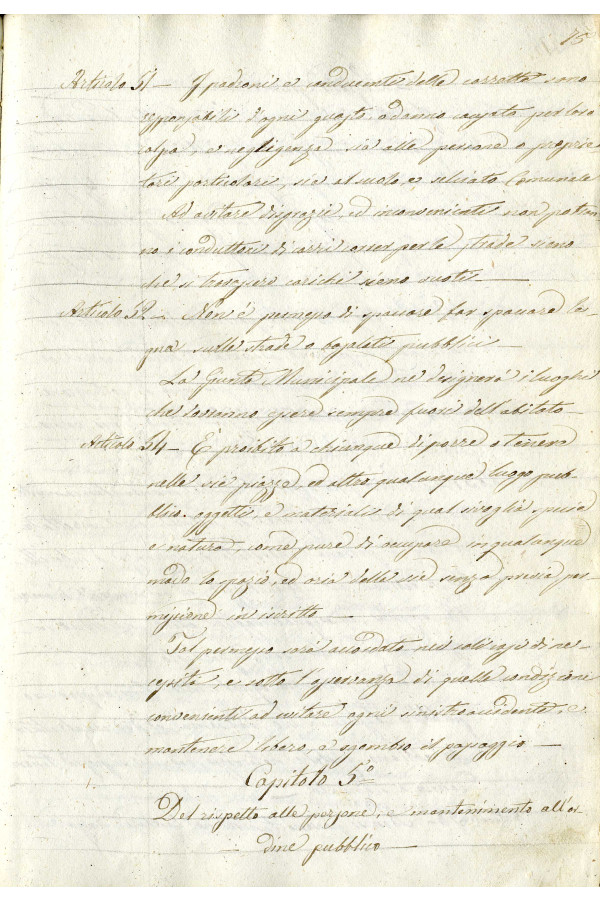 15
Articolo 51 — I padroni e conducenti delle carrette sono
responsabili d'ogni guasto, o danno causato per loro
colpa, e negligenza sia alle persone o proprie
tari particolari, sia al suolo, e selciato Comunale
Ad evitare disgrazie, ed inconvenienti non potran
no i conduttori di carri correr per le strade sieno
che si trovassero carichi sieno vuoti —
Articolo 52 — Non è permesso di spaccare far spaccare le-
gna sulle strade o pubblici —
La Giunta Municipale ne disegnerà i luoghi
che dovranno essere sempre fuori dell'abitato —
Articolo 54 — È proibito a chiunque di porre o tenere
nelle vie piazze, ed altro qualunque luogo pub-
blico oggetti, e materiali di qual sivoglia specie
e natura, come pure di occupare in qualunque
modo lo spazio, ed aria delle vie senza previa per
missione in iscritto —
Tal permesso sarà accordato nei soli casi di ne-
cessità, e sotto l'osservanza di quelle condizioni
convenienti ad evitare ogni sinistro accidente, e
mantenere libero, e sgombro il passaggio —
Capitolo 5°
Del rispetto alle persone, e mantenimento all'or
dine pubblico —